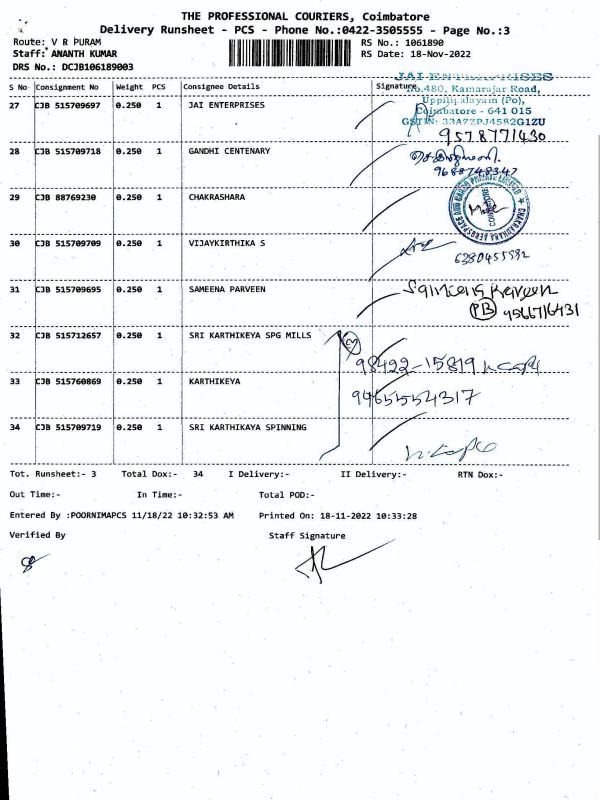 THE PROFESSIONAL COURIERS, Coimbatore
Delivery Runsheet - PCS - Phone No.:0422-3505555 - Page No.:3
Route: V R PURAM RS No.: 1061890
Staff: ANANTH KUMAR RS Date: 18-Nov-2022
DRS No.: DCJB106189003
S No Consignment No Weight PCS Consignee Details Signature
JAI ENTERPRISES
No.480, Kamarajar Road,
Uppilipalayam (Po),
Coimbatore - 641 015
GSTIN: 33AZZPJ4582G1ZU
27 CJB 515709697 0.250 1 JAI ENTERPRISES
9578771430
28 CJB 515709718 0.250 1 GANDHI CENTENARY
9688748347
29 CJB 88769230 0.250 1 CHAKRASHARA
30 CJB 515709709 0.250 1 VIJAYKIRTHIKA S
6380455982
31 CJB 515709695 0.250 1 SAMEENA PARVEEN
Sameena Parveen
PB 9566716431
32 CJB 515712657 0.250 1 SRI KARTHIKEYA SPG MILLS
3
98422-15819
33 CJB 515760869 0.250 1 KARTHIKEYA
34 CJB 515709719 0.250 1 SRI KARTHIKAYA SPINNING
Tot. Runsheet:- 3 Total Dox:- 34 I Delivery:- II Delivery:- RTN Dox:-
Out Time:- In Time:- Total POD:-
Entered By :POORNIMAPCS 11/18/22 10:32:53 AM Printed On: 18-11-2022 10:33:28
Verified By Staff Signature